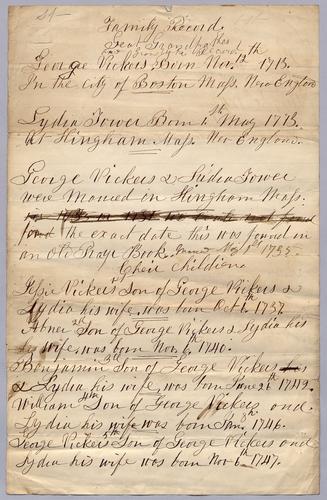 Family Record.
Great Grand
George Vickers Born Nov. th 1713.
In the City of Boston Mass. New England
Lydia Tower Born 1st May 1713.
At Hingham Mass. New England.
George Vickers & Lidia Tower
were Maried in Hingham Mass:
the exact date this was found in
an old Prayr Book. 1st 1735.
Their Children
Jessie Vickers 1st Son of George Vickers &
Lydia his wife, was born Oct 6th 1737.
Abner 2d Son of George Vickers & Lydia his
wife, was born Nov. 6th 1740.
Benjamin 3rd Son of George Vickers
& Lydia his wife, was born June 26th 1742.
William 4th Son of George Vickers and
Lydia his wife was born Jan. 8th 1746.
George Vickers 5th Son of George Vickers and
Lydia his wife was born Nov 6th 1747.